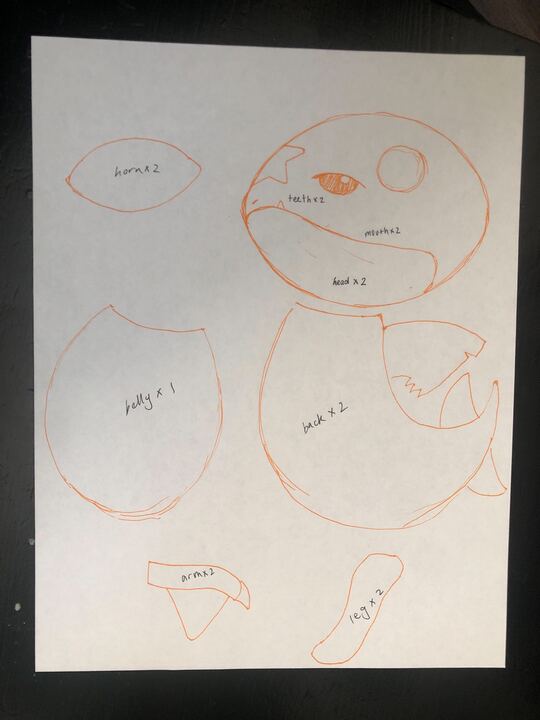 horn x 2
teeth x 2
mouth x 2
head x 2
belly x 1
back x 2
arm x 2
leg x 2